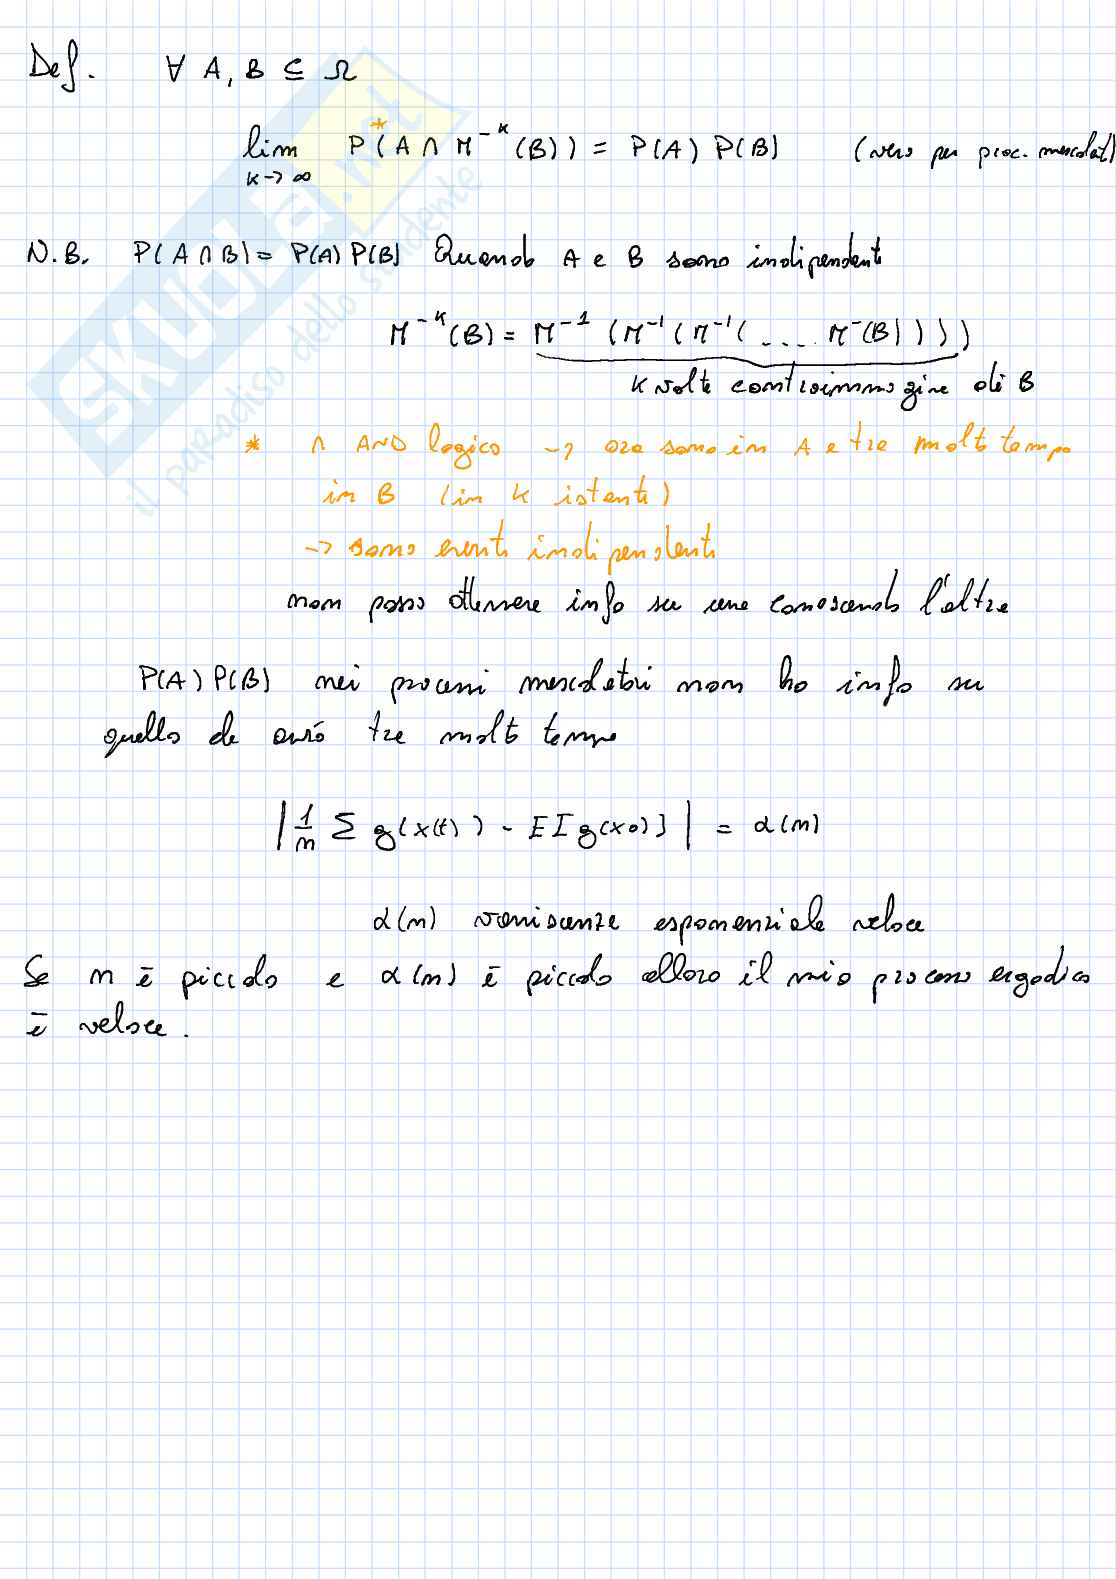 Def. ∀ A, B ⊆ Ω
lim P(A ∩ M^-k (B)) = P(A) P(B) (vero per proc. mescolat)
*
k→∞
N.B. P(A∩B) = P(A) P(B) Quando A e B sono indipendenti
M^-k (B) = M^-1 (M^-1 (M^-1 ( .... M^-(B) ) ) )
k volte controimmagine di B
* ∩ AND logico → ora sono in A e tra molto tempo
in B (in k istanti)
→ sono eventi indipendenti
non posso ottenere info su una conoscendo l'altra
P(A) P(B) nei processi mescolatori non ho info su
quello che avrò tra molto tempo
| 1/n Σ g(x(t)) - E[g(x0)] | = α(n)
α(n) esponenziale veloce
Se n è piccolo e α(n) è piccolo allora il mio processo ergodico
è veloce.
SKUOLA.net
il paradiso dello studente